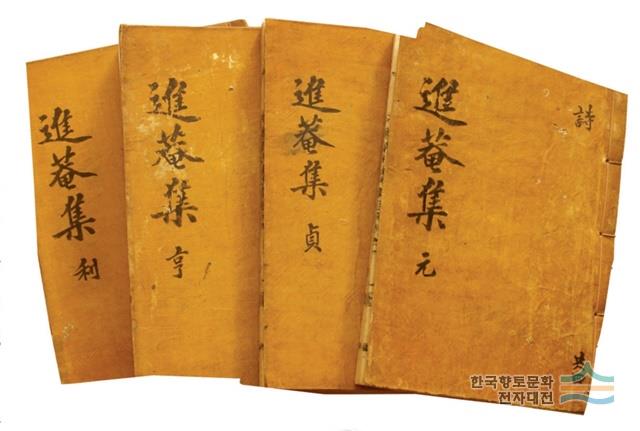 進菴集
利
進菴集
亨
進菴集
貞
進菴集
元
詩
共
한국향토문화
전자대전